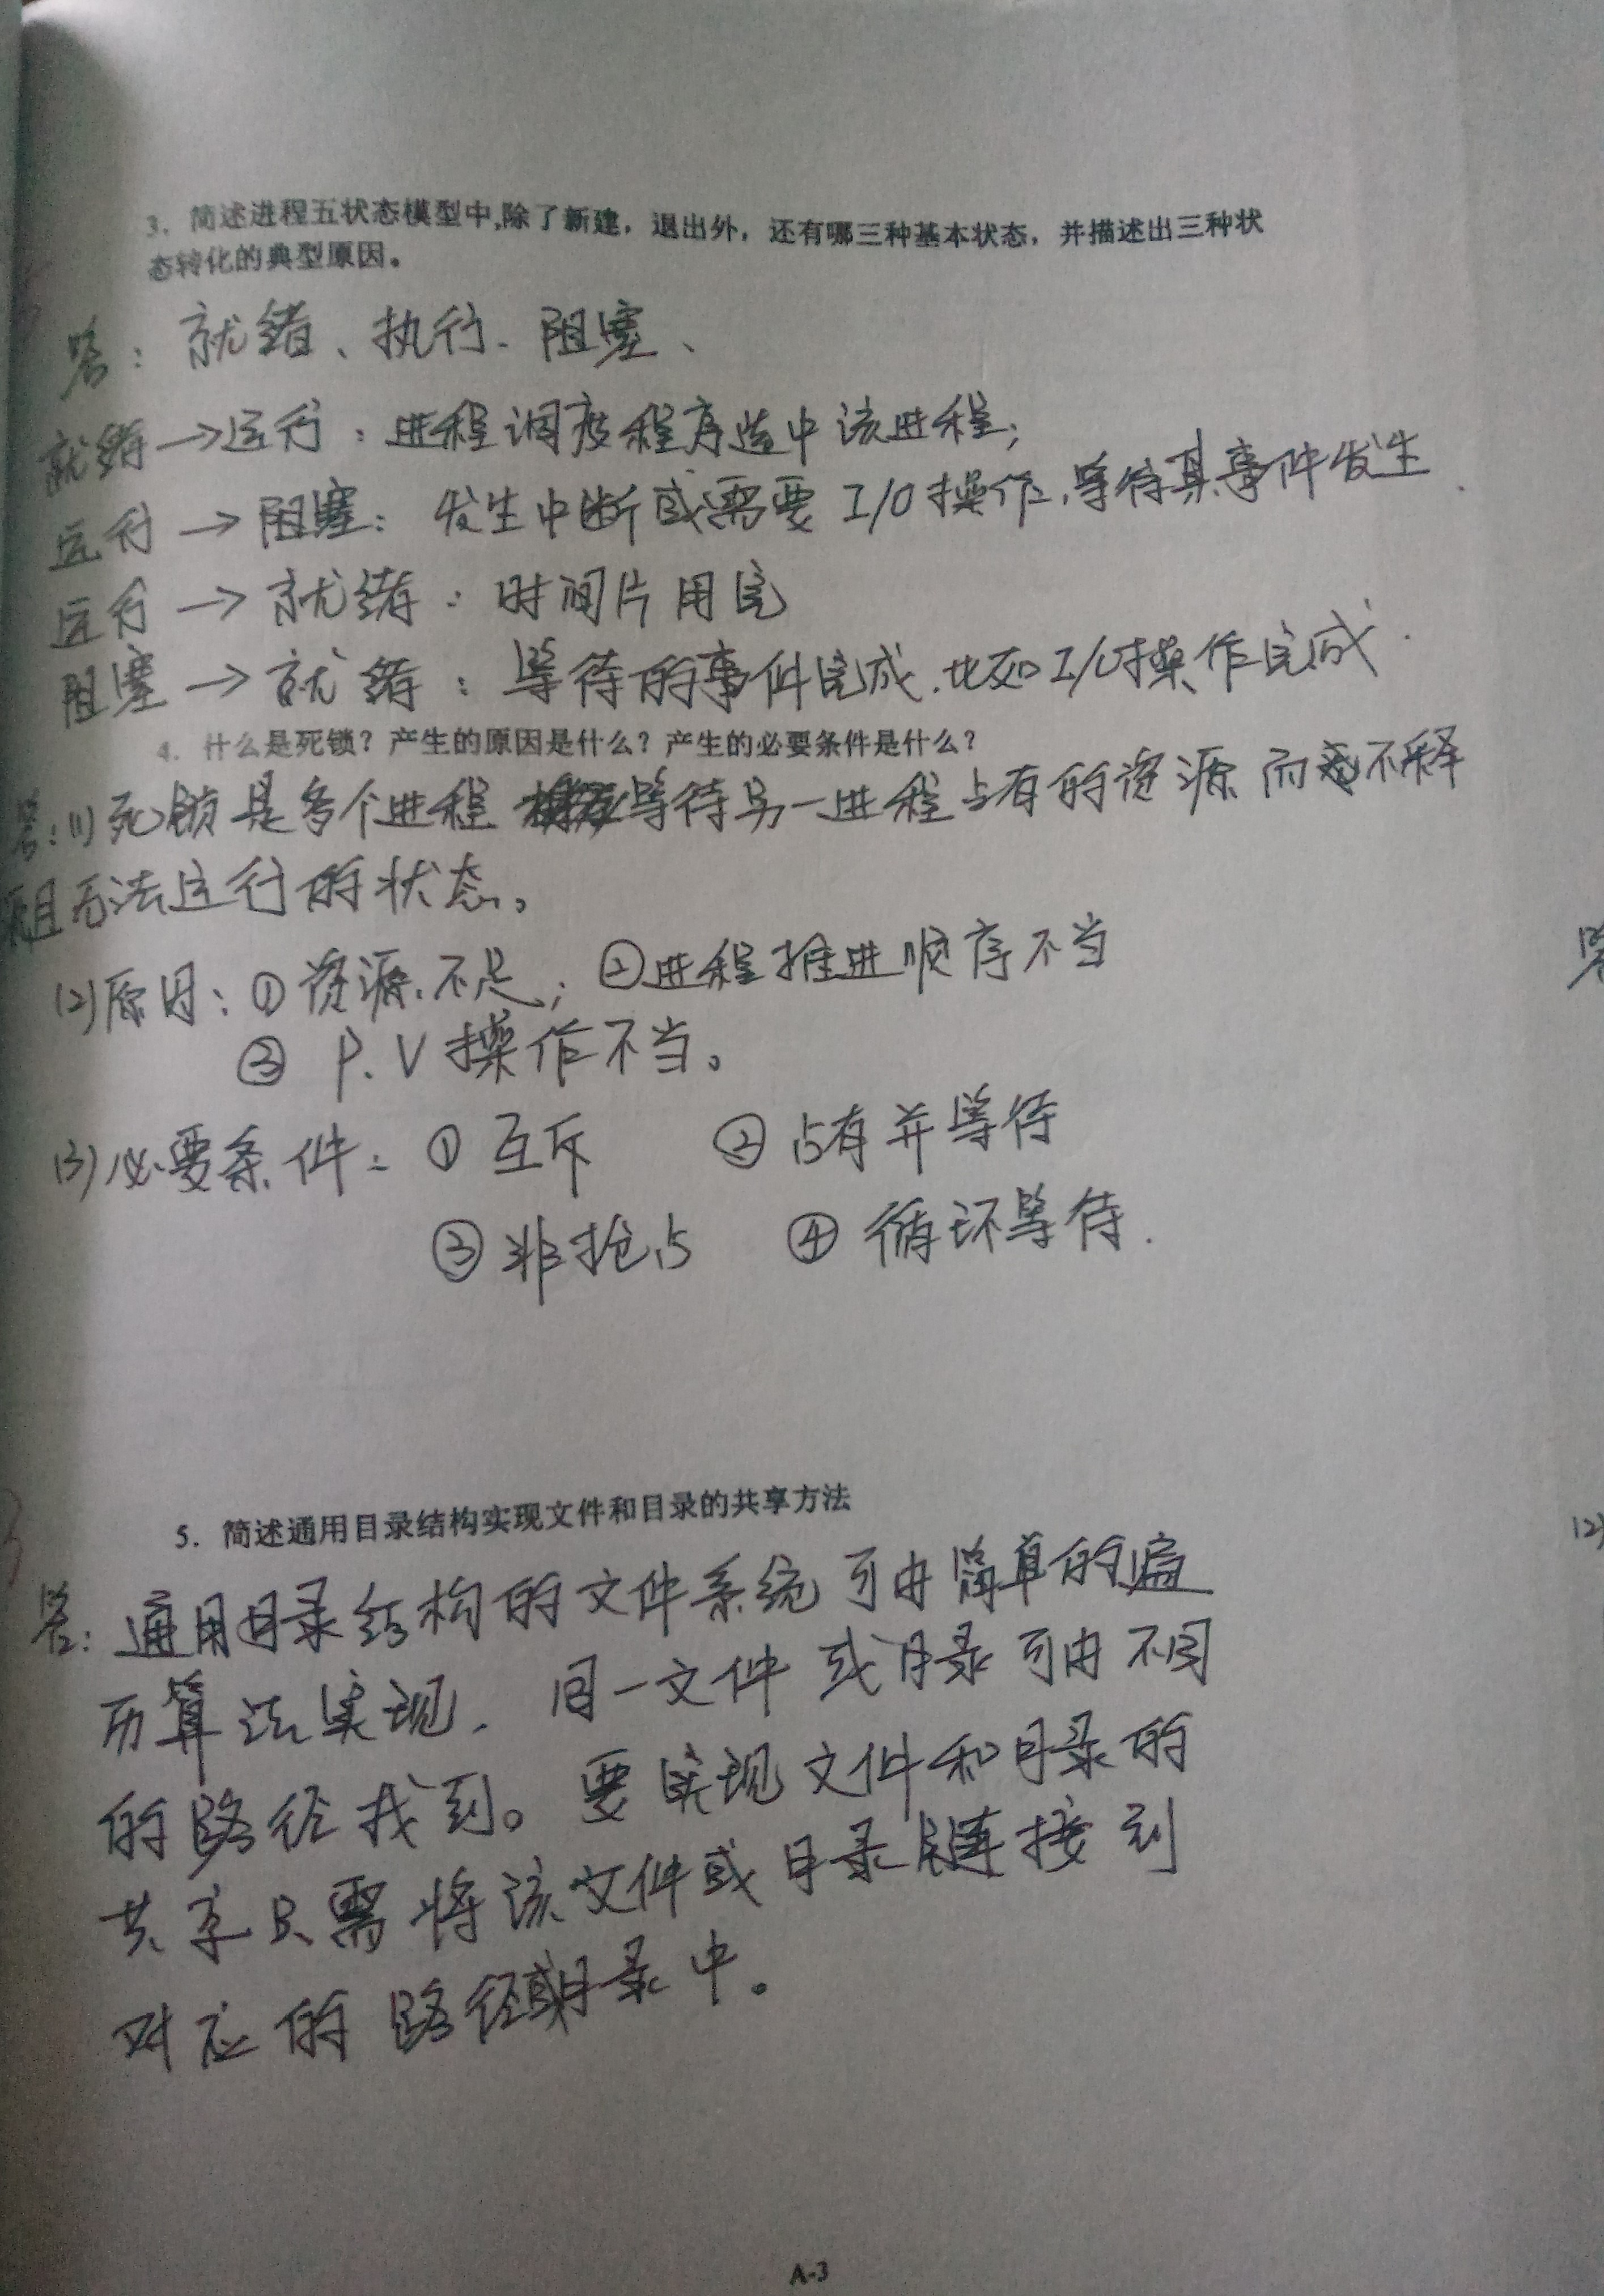 3. 简述进程五状态模型中,除了新建，退出外，还有哪三种基本状态，并描述出三种状
态转化的典型原因。
答：就绪、执行、阻塞、
就绪→运行：进程调度程序选中该进程；
运行→阻塞：发生中断或需要I/O操作，等待某事件发生.
运行→就绪：时间片用完
阻塞→就绪：等待的事件完成，比如I/O操作完成.
4. 什么是死锁？产生的原因是什么？产生的必要条件是什么？
答：(1)死锁是多个进程等待另一进程占有的资源而不释
且无法运行的状态。
(2)原因：①资源不足；②进程推进顺序不当
③ P.V操作不当。
(3)必要条件：①互斥 ②占有并等待
③非抢占 ④循环等待.
5. 简述通用目录结构实现文件和目录的共享方法
答：通用目录结构的文件系统可由简单的遍
历算法实现，同一文件或目录可由不同
的路径找到。要实现文件和目录的
共享只需将该文件或目录链接到
对应的路径或目录中。
答
(2)
A-3